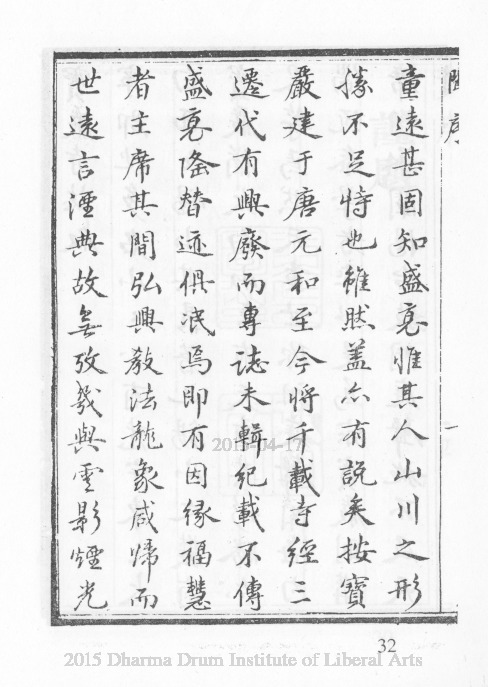 聞序
一
童遠甚固知盛衰惟其人山川之形
勝不足恃也雖然蓋亦有說矣按寶
嚴建于唐元和至今將千載寺經三
遷代有興廢而專誌未輯紀載不傳
盛衰隆替迹俱泯焉即有因緣福慧
者主席其間弘興教法龍象咸歸而
世遠言湮典故無攷幾與雲影煙光
2015-04-17
32
2015 Dharma Drum Institute of Liberal Arts